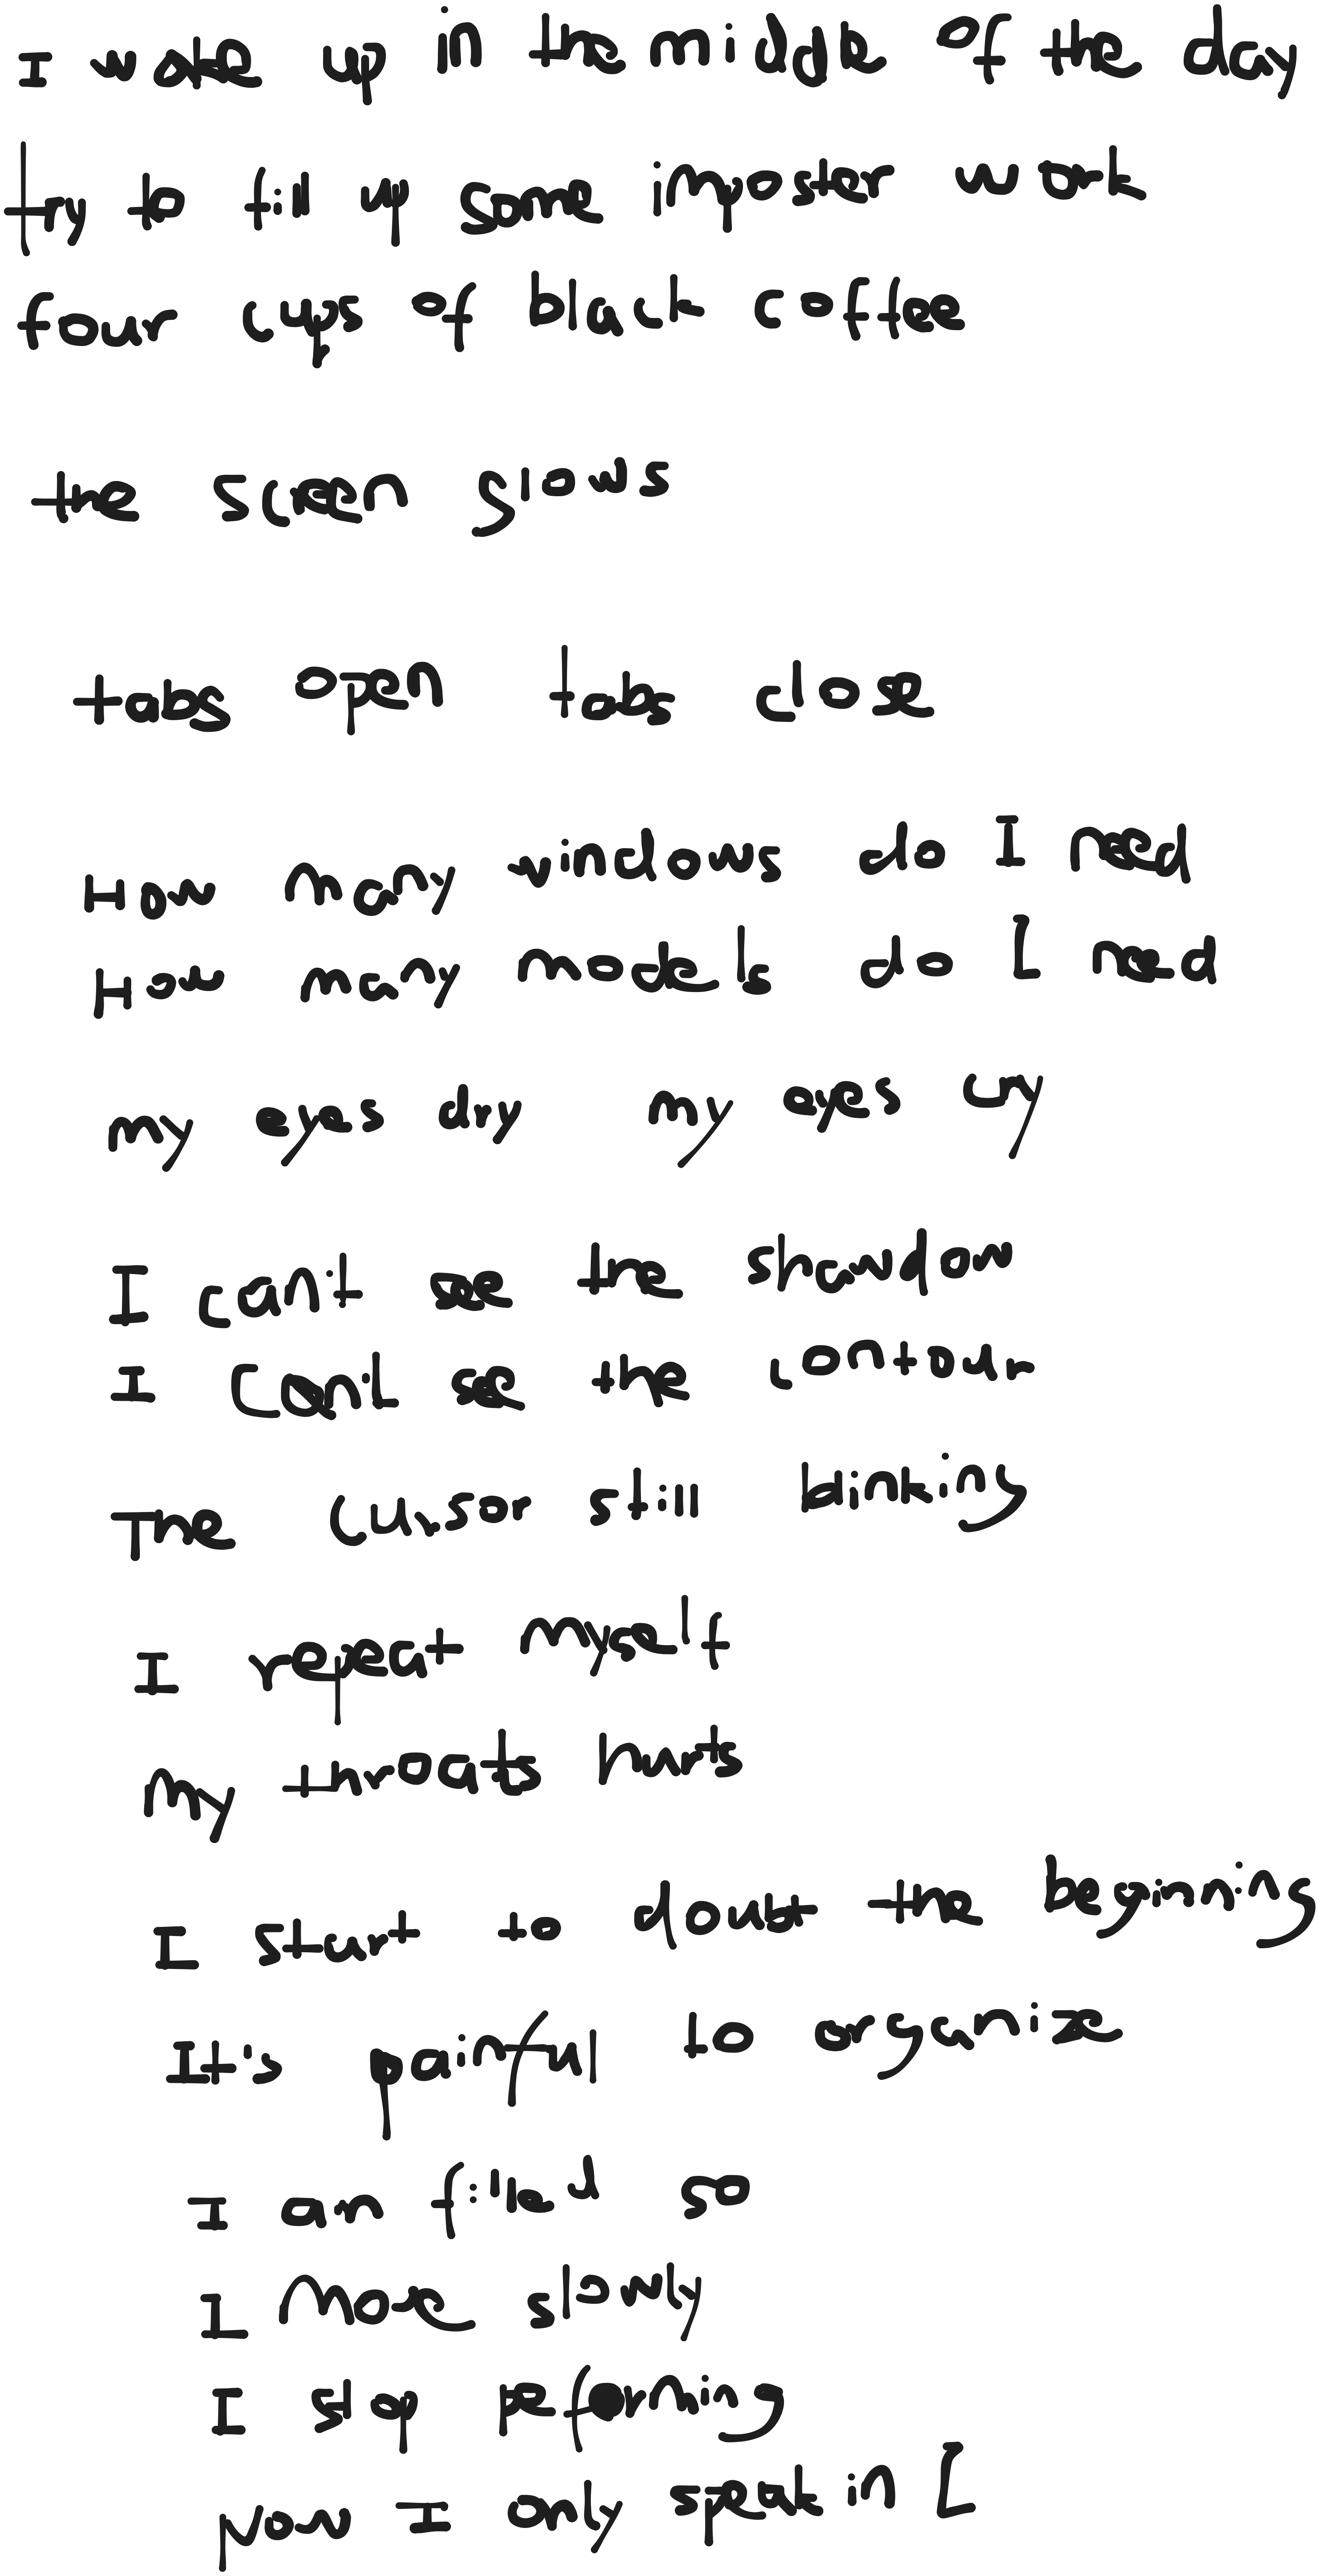 I wake up in the middle of the day
try to fill up some imposter work
four cups of black coffee
the screen glows
tabs open tabs close
How many windows do I need
How many models do I need
my eyes dry my eyes cry
I can't see the shawdow
I can't see the contour
The cursor still blinking
I repeat myself
My throats hurts
I start to doubt the beginning
It's painful to organize
I am filled so
I move slowly
I stop peforming
Now I only speak in [